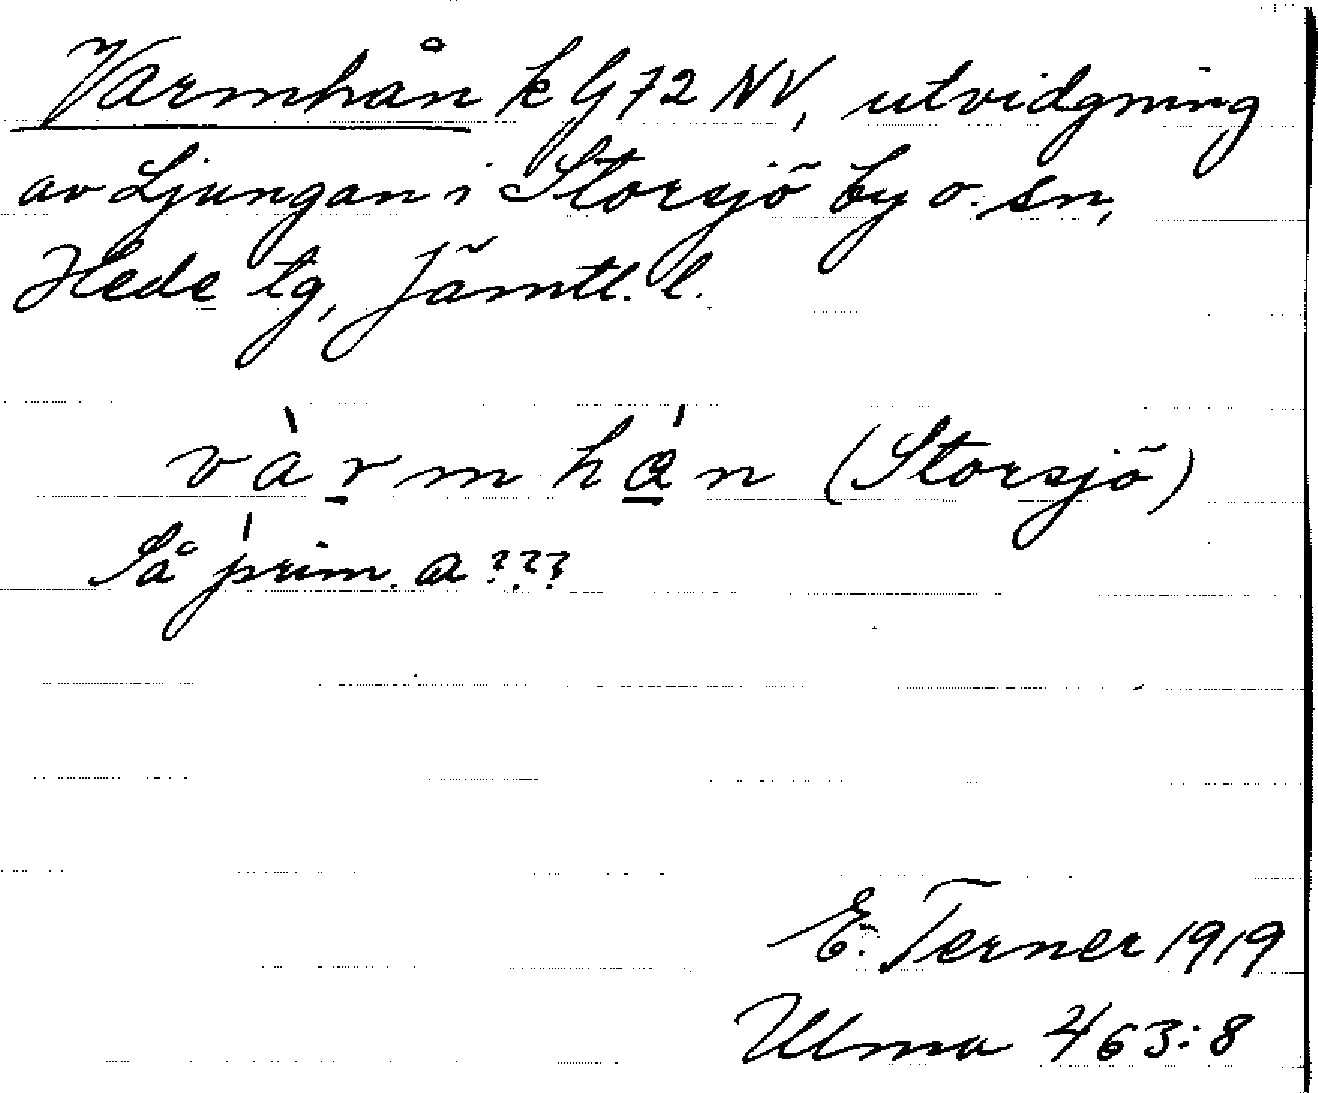 Varmhån k G 72 NV, utvidgning
av Ljungan i Storsjö by o. sn,
Hede tg, Jämtl. l.
v à r m h á n (Storsjö)
Så prim. a???
E. Terner 1919
Ulma 463:8